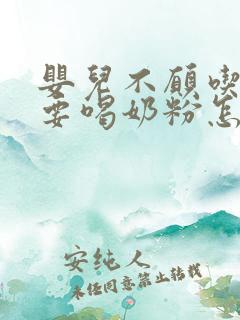 嬰兒不願喫
要喝奶粉怎
安纯人
未经同意禁止转载